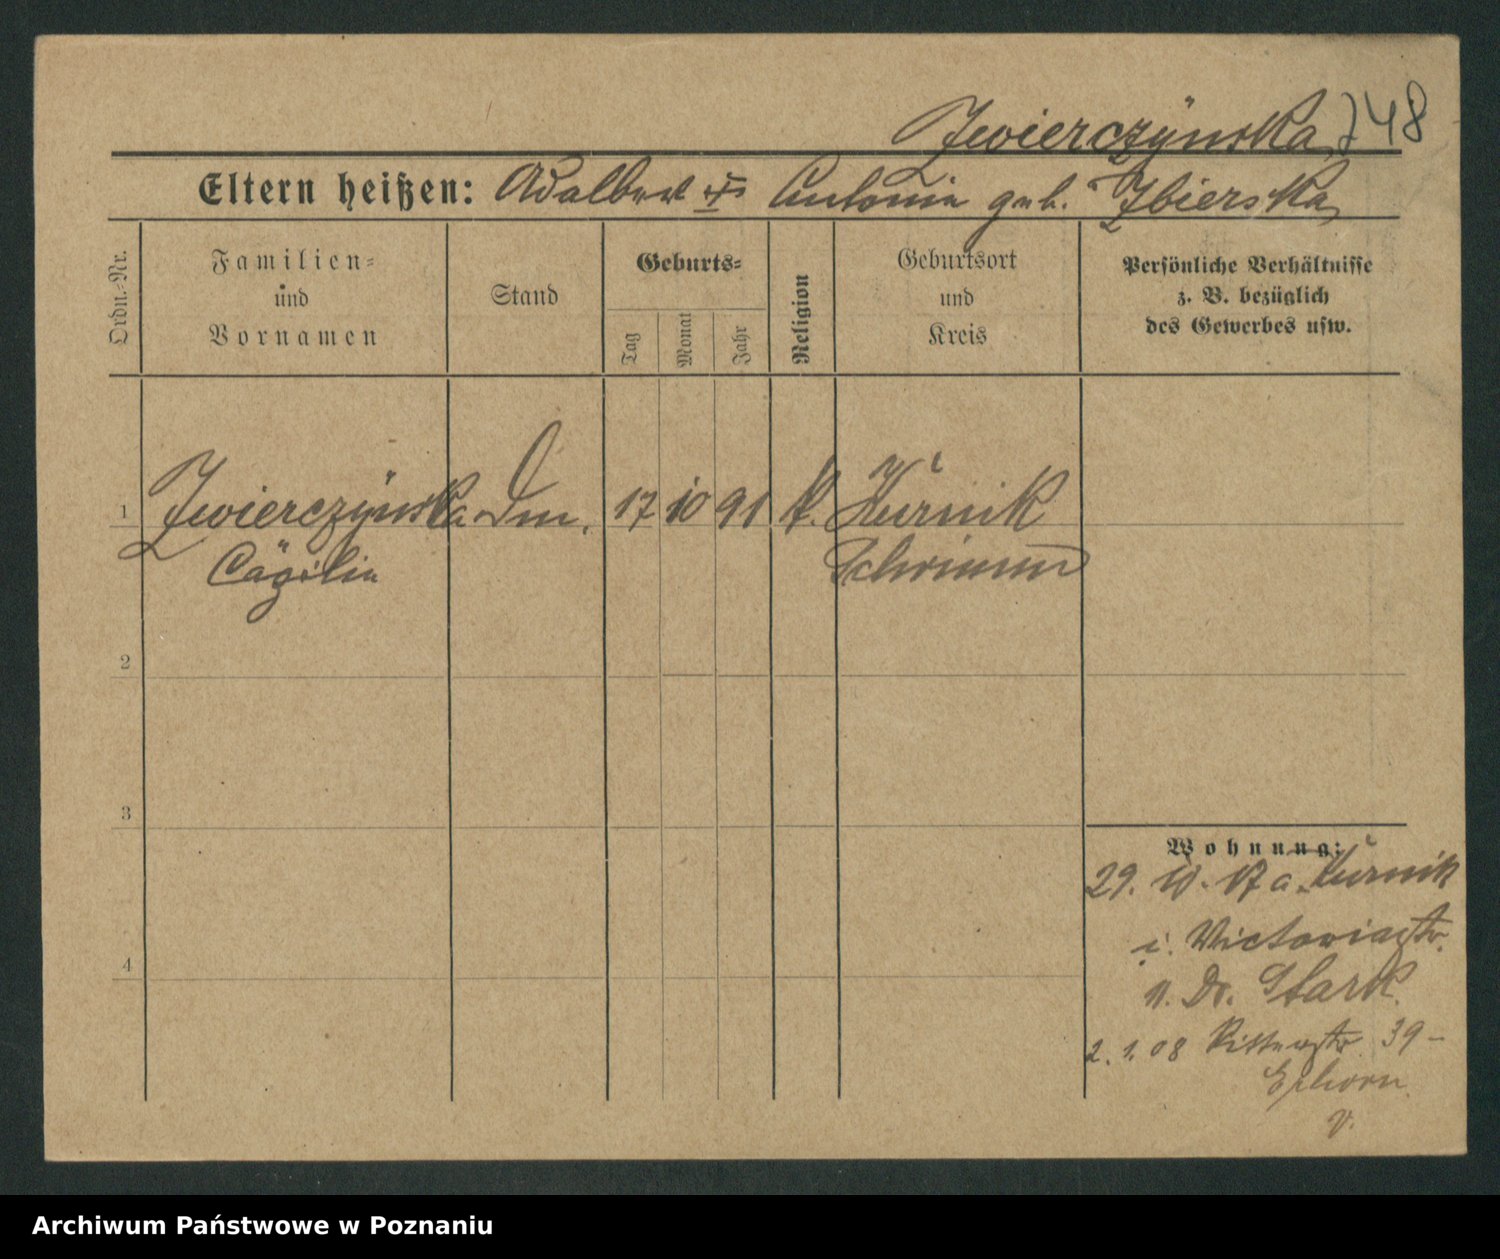 Zwierczynska 748
Eltern heißen: Adalbert u Antonie geb. Zbierska
Ordn.-Nr.
Familien-
und
Vornamen
Stand
Geburts-
Tag
Monat
Jahr
Religion
Geburtsort
und
Kreis
Persönliche Verhältnisse
z. B. bezüglich
des Gewerbes usw.
1 Zwierczynska Dm. 17 10 91 k. Kurnik
Cäzilie Schrimm
2
3
4
Wohnung:
29. 10. 07 a. Kurnik
i. Victoriastr.
11. Dr. Stark
2. 1. 08 Ritterstr. 39 -
v.
Archiwum Państwowe w Poznaniu